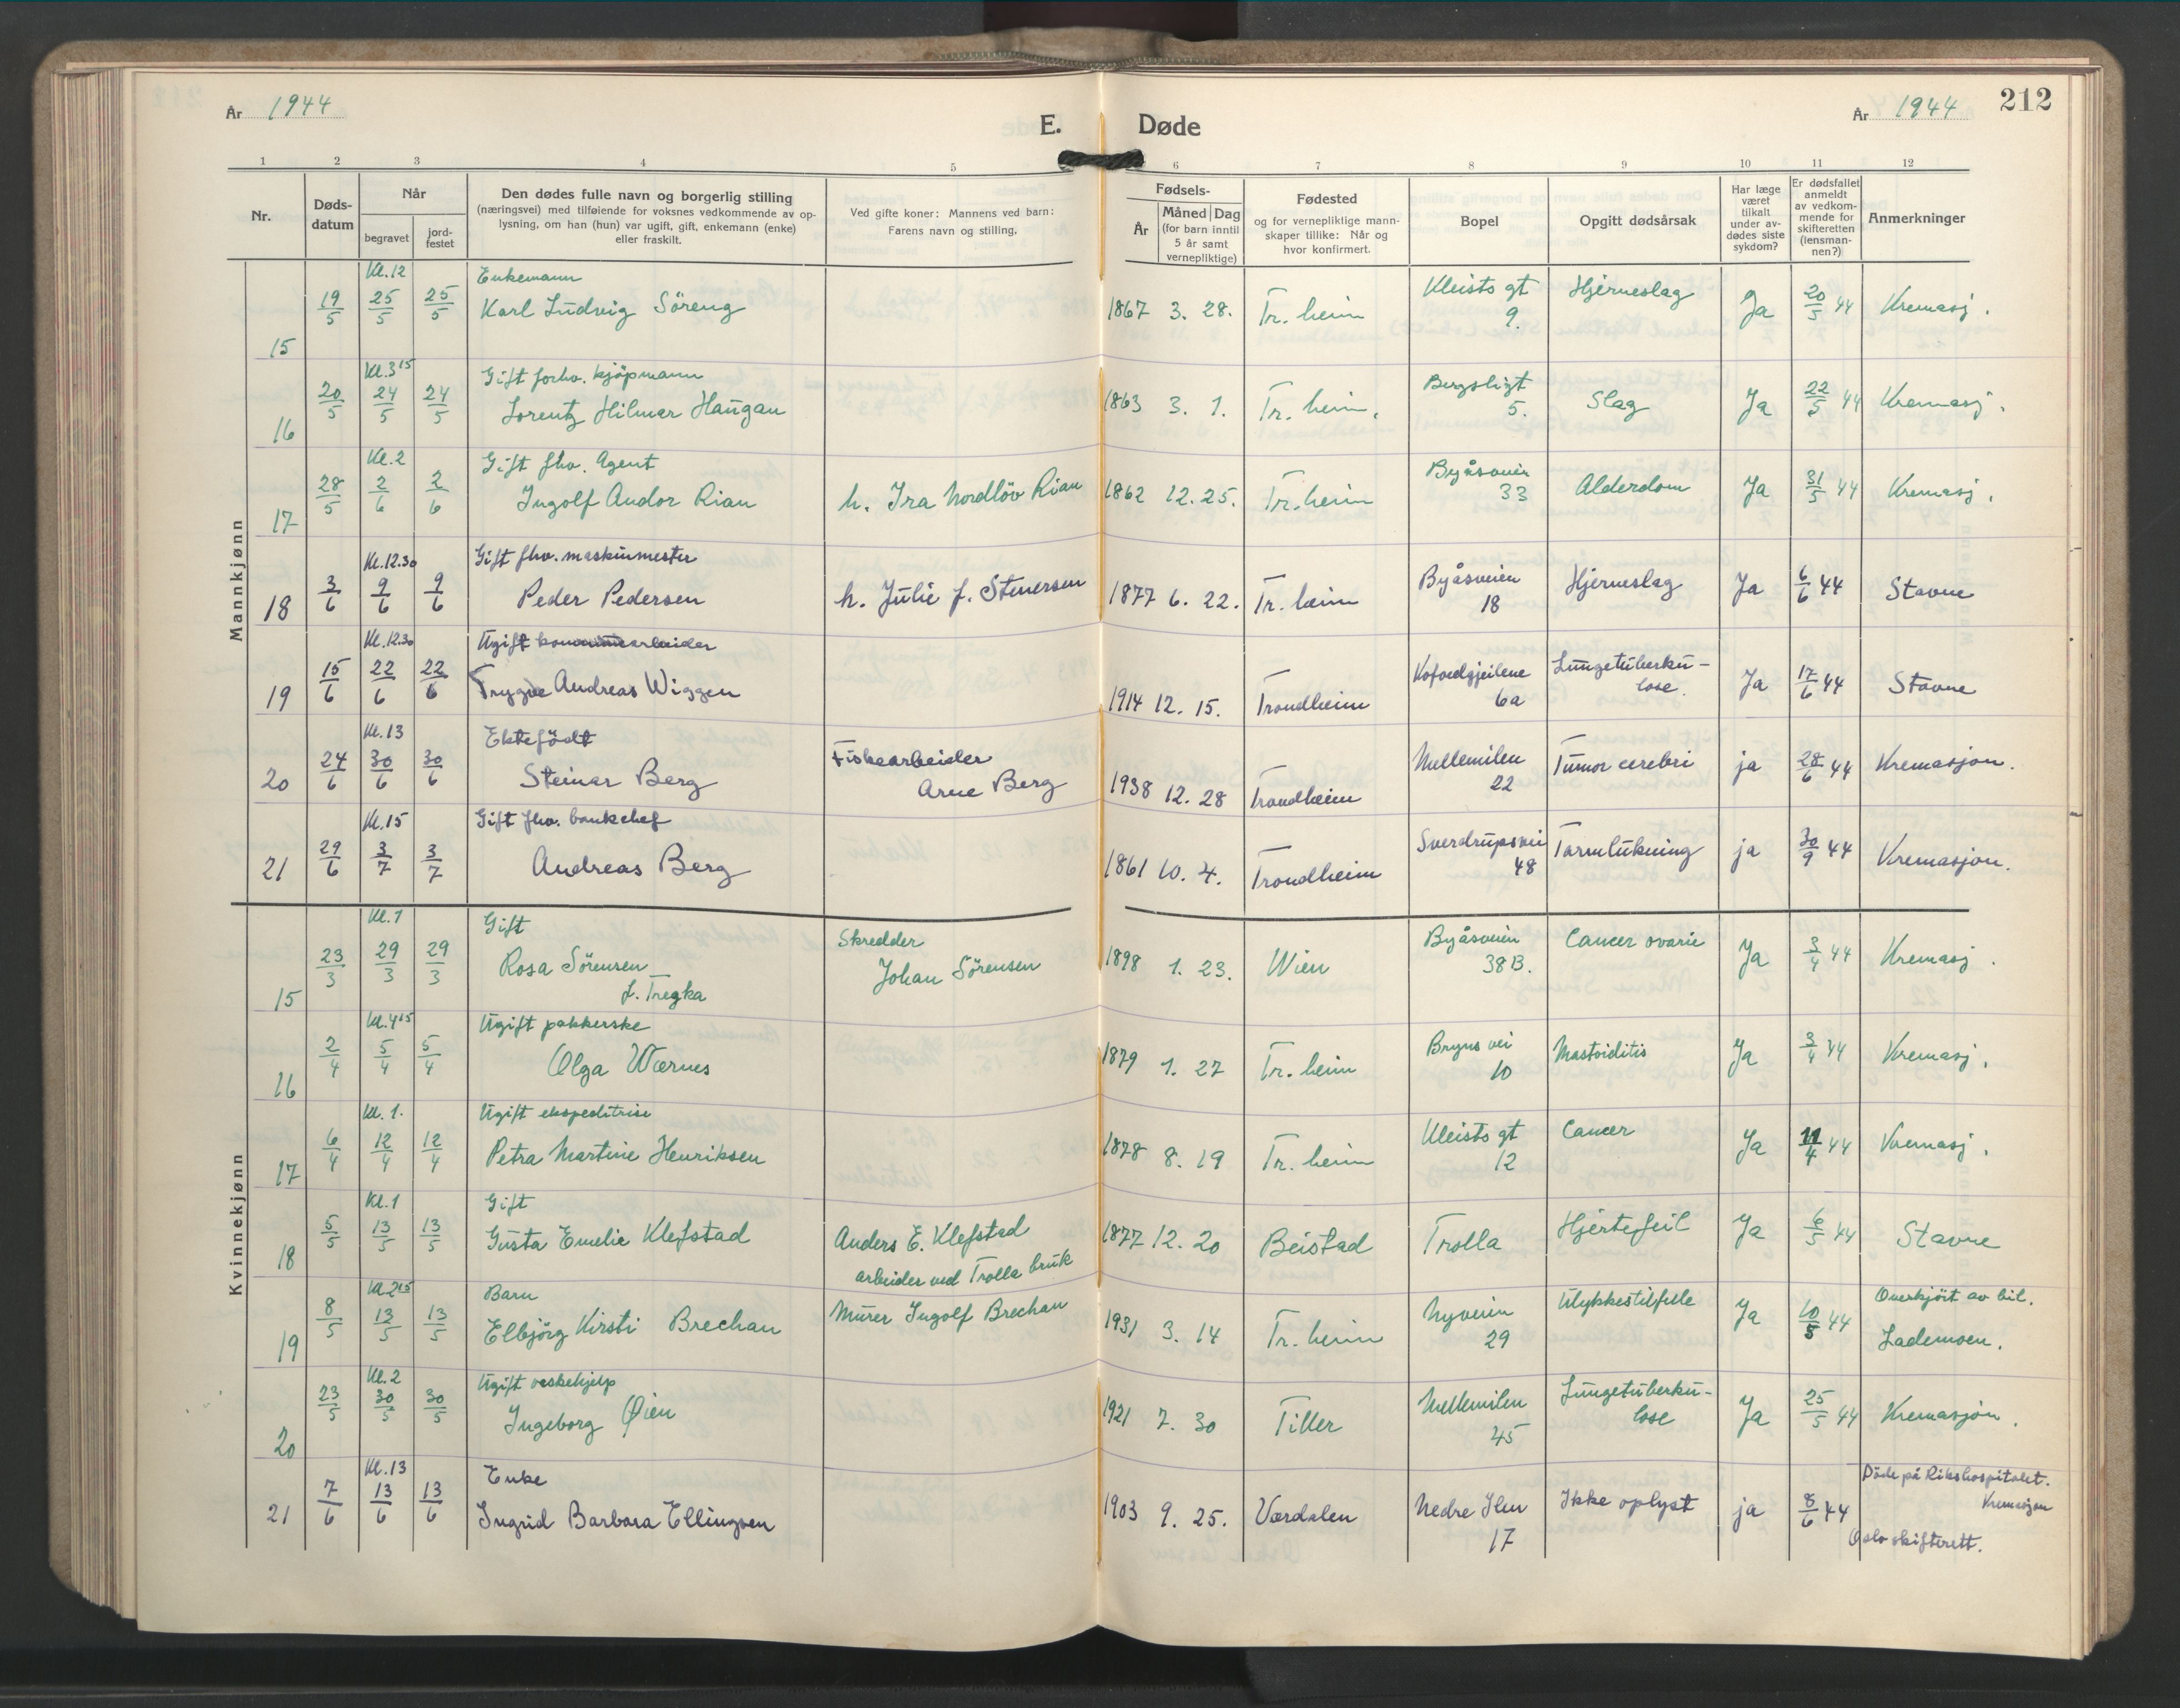 År 1944
E. Døde
År 1944
212
1 2 3 4 5 6 7 8 9 10 11 12
Nr.
Døds-
datum
Når
begravet
jord-
festet
Den dødes fulle navn og borgerlig stilling
(næringsvei) med tilføiende for voksnes vedkommende av op-
lysning, om han (hun) var ugift, gift, enkemann (enke)
eller fraskilt.
Ved gifte koner: Mannens ved barn:
Farens navn og stilling.
Fødsels-
År
Måned Dag
(for barn inntil
5 år samt
vernepliktige)
Fødested
og for vernepliktige mann-
skaper tillike: Når og
hvor konfirmert.
Bopel
Opgitt dødsårsak
Har læge
været
tilkalt
under av-
dødes siste
sykdom?
Er dødsfallet
anmeldt
av vedkom-
mende for
skifteretten
(lensman-
nen?)
Anmerkninger
Mannkjønn
15 19/5 Kl. 12 25/5 25/5 Enkemann
Karl Ludvig Söreng 1867 3. 28. Tr. heim Kleists gt 9. Hjerneslag Ja 20/5 44 Kremasj.
16 20/5 Kl. 3 15 24/5 24/5 Gift forhv. kjöpmann
Lorentz Hilmar Haugan 1863 3. 1. Tr. heim. Bergsligt 5. Slag Ja 22/5 44 Kremasj.
17 28/5 Kl. 2 2/6 2/6 Gift fhv. Agent
Ingolf Andor Rian h. Ira Nordlöv Rian 1862 12. 25. Tr. heim Byåsveien 33 Alderdom Ja 31/5 44 Kremasj.
18 3/6 Kl. 12.30 9/6 9/6 Gift fhv. maskinmester
Peder Pedersen h. Julie f. Stenersen 1877 6. 22. Tr. heim Byåsveien 18 Hjerneslag Ja 6/6 44 Stavne
19 15/6 Kl. 12.30 22/6 22/6 Ugift arbeider
Trygve Andreas Wiggen 1914 12. 15. Trondheim Kofoedgjeilene 6a Lungetuberku-
lose. Ja 17/6 44 Stavne
20 24/6 Kl. 13 30/6 30/6 Ektefödt
Steinar Berg Fiskearbeider
Arne Berg 1938 12. 28 Trondheim Mellemilen 22 Tumor cerebri ja 28/6 44 Kremasjon.
21 29/6 Kl. 15 3/7 3/7 Gift fhv. banksjef
Andreas Berg 1861 10. 4. Trondheim Sverdrupsvei 48 Tarmlukning ja 30/9 44 Kremasjon.
Kvinnekjønn
15 23/3 Kl. 1 29/3 29/3 Gift
Rosa Sörensen
f. Tregka Skredder
Johan Sörensen 1898 1. 23. Wien Byåsveien 38 B. Cancer ovarie Ja 3/4 44 Kremasj.
16 2/4 Kl. 4 15 5/4 5/4 Ugift pakkerske
Olga Wærnes 1879 1. 27 Tr. heim Bryns vei 10 Mastoiditis Ja 3/4 44 Kremasj.
17 6/4 Kl. 1. 12/4 12/4 Ugift ekspeditrise
Petra Martine Henriksen 1878 8. 19 Tr. heim Kleists gt 12 Cancer Ja 11/4 44 Kremasj.
18 5/5 Kl. 1 13/5 13/5 Gift
Gusta Emelie Klefstad Anders E. Klefstad
arbeider ved Trolla bruk 1877 12. 20 Beistad Trolla Hjertefeil Ja 6/5 44 Stavne
19 8/5 Kl. 2 15 13/5 13/5 Barn
Elbjörg Kirsti Brechan Murer Ingolf Brechan 1931 3. 14 Tr. heim Nyveien 29 Ulykkestilfelle Ja 10/5 44 Overkjört av bil.
Lademoen.
20 23/5 Kl. 2 30/5 30/5 Ugift vaskehjelp
Ingeborg Øien 1921 7. 30 Tiller Mellemilen 45 Lungetuberku-
lose Ja 25/5 44 Kremasjon.
21 7/6 Kl. 13 13/6 13/6 Enke
Ingrid Barbara Ellingsen 1903 9. 25. Værdalen Nedre Ilen 17 Ikke oplyst ja 8/6 44 Döde på Rikshospitalet.
Kremasjon
Oslo skifterett.